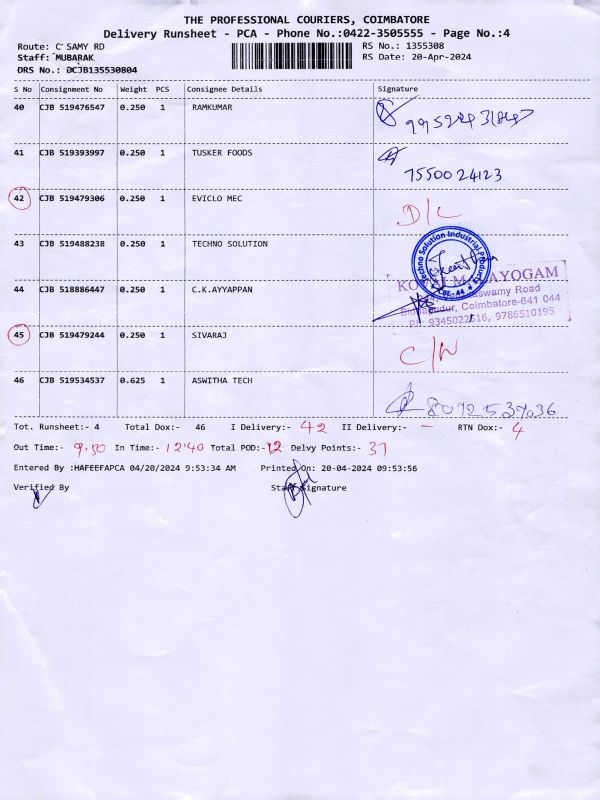 THE PROFESSIONAL COURIERS, COIMBATORE
Delivery Runsheet - PCA - Phone No.:0422-3505555 - Page No.:4
Route: C SAMY RD RS No.: 1355308
Staff: MUBARAK RS Date: 20-Apr-2024
DRS No.: DCJB135530804
S No Consignment No Weight PCS Consignee Details Signature
40 CJB 519476547 0.250 1 RAMKUMAR
41 CJB 519393997 0.250 1 TUSKER FOODS
7550024123
42 CJB 519479306 0.250 1 EVICLO MEC
D/L
43 CJB 519488238 0.250 1 TECHNO SOLUTION
Techno Solution Industrial Products
CBE-44
44 CJB 518886447 0.250 1 C.K.AYYAPPAN
AYOGAM
swamy Road
pudur, Coimbatore-641 044
Ph: 9345022616, 9786510195
45 CJB 519479244 0.250 1 SIVARAJ
C/N
46 CJB 519534537 0.625 1 ASWITHA TECH
8072537036
Tot. Runsheet:- 4 Total Dox:- 46 I Delivery:- 42 II Delivery:- — RTN Dox:- 4
Out Time:- 9.50 In Time:- 12.40 Total POD:- 12 Delvy Points:- 37
Entered By :HAFEEFAPCA 04/20/2024 9:53:34 AM Printed On: 20-04-2024 09:53:56
Verified By Staff Signature